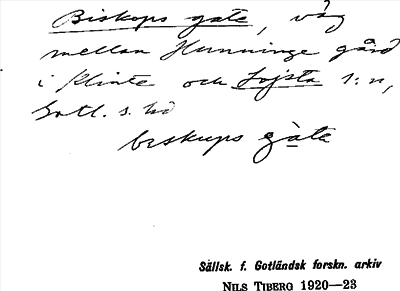 Biskops gate, väg
mellan Hunninge gård
i Klinte och Lojsta s:n,
Gotl. s. hd
biskups gate
Sällsk. f. Gotländsk forskn. arkiv
NILS TIBERG 1920—23